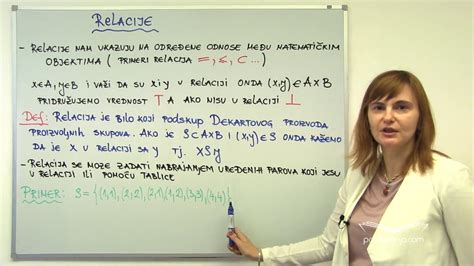 RELACIJE
- RELACIJE NAM UKAZUJU NA ODREĐENE ODNOSE MEĐU MATEMATIČKIM
OBJEKTIMA ( PRIMERI RELACIJA =, ≤, ⊂ ...)
X∈A, y∈B I VAŽI DA SU X I y U RELACIJI ONDA (X,y)∈A×B
PRIDRUŽUJEMO VREDNOST T A AKO NISU U RELACIJI ⊥
DEF: RELACIJA JE BILO KOJI PODSKUP DEKARTOVOG PROIZVODA
PROIZVOLJNIH SKUPOVA. AKO JE S⊂A×B I (X,y)∈S ONDA KAŽEMO
DA JE X U RELACIJI SA y TJ. XSy
- RELACIJA SE MOŽE ZADATI NABRAJANJEM UREĐENIH PAROVA KOJI JESU
U RELACIJI ILI POMOĆU TABLICE
PRIMER: S = {(1,1), (2,2), (2,1), (1,2), (3,3), (4,4)}